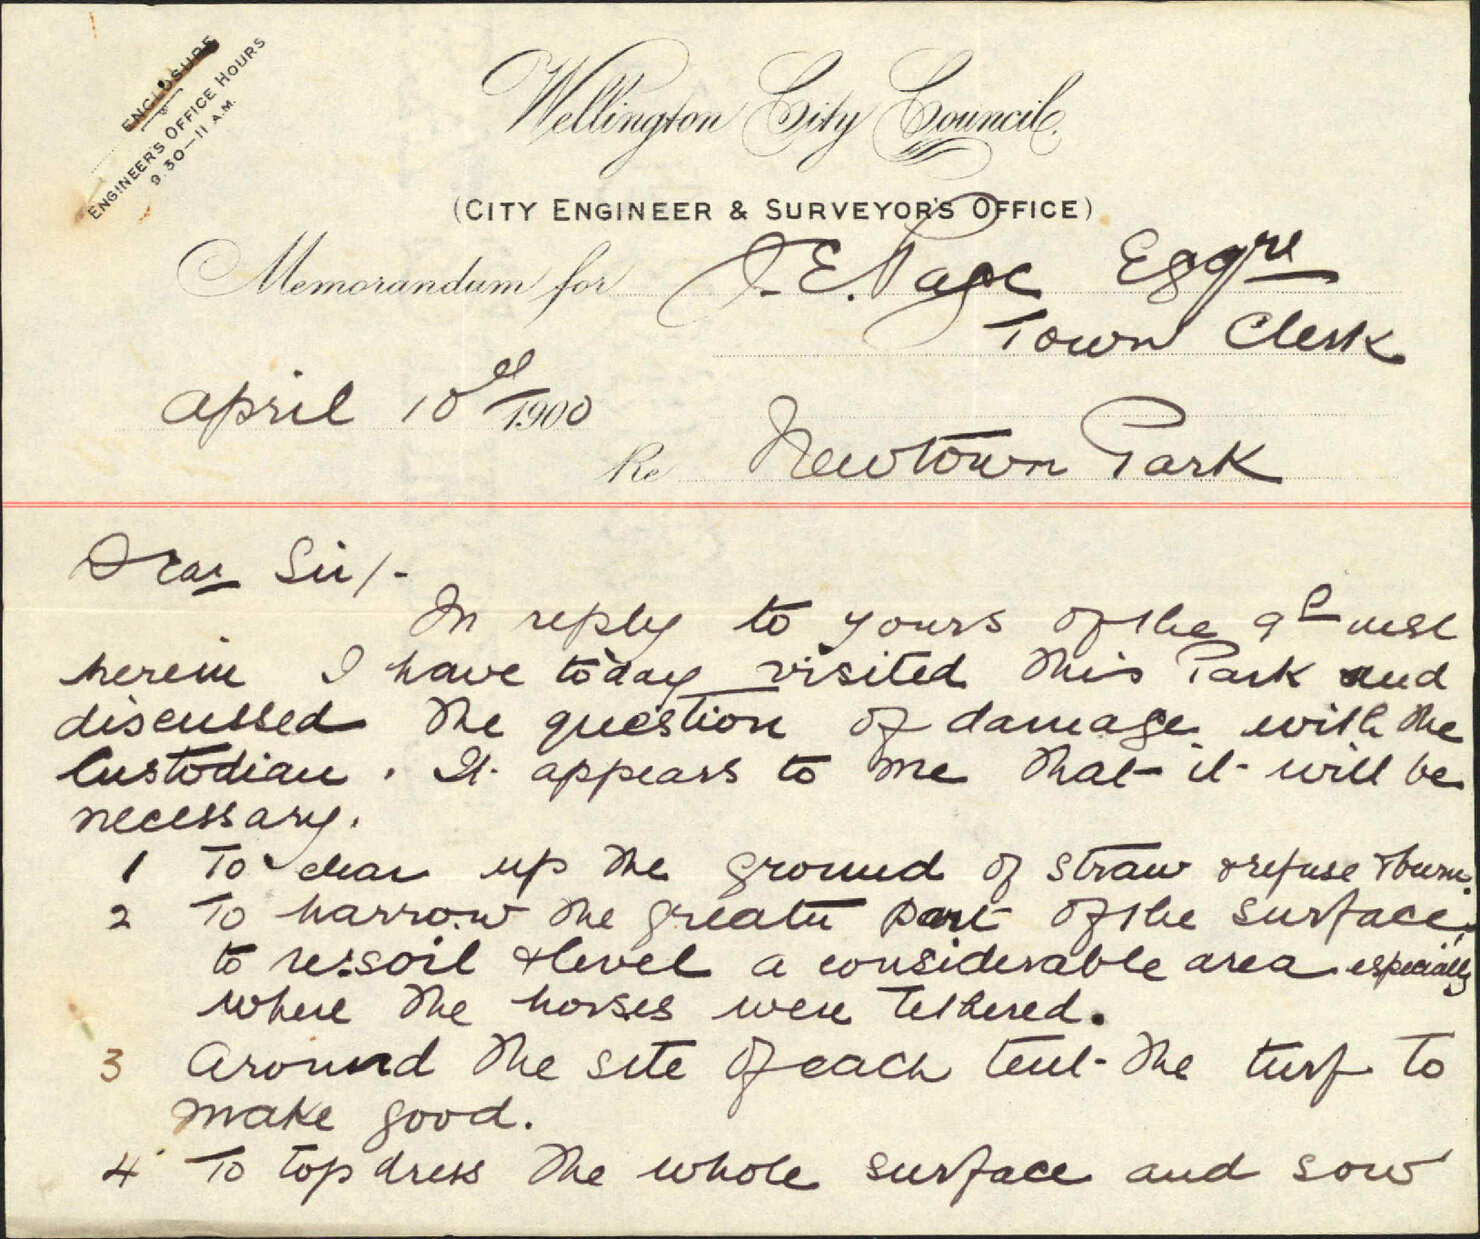 ENCLOSURE
ENGINEER'S OFFICE HOURS
9.30—11 A.M.
Wellington City Council.
(CITY ENGINEER & SURVEYOR'S OFFICE)
Memorandum for J. E. Page Esqre
Town Clerk
April 10th 1900
Re Newtown Park
Dear Sir/-
In reply to yours of the 9th inst
herein I have today visited this Park and
discussed the question of damage with the
Custodian. It appears to me that it will be
necessary.
1 To clear up the ground of straw & refuse & burn.
2 To harrow the greater part of the surface,
to re:soil & level a considerable area especially
where the horses were tethered.
3 Around the site of each tent the turf to
make good.
4 To top dress the whole surface and sow